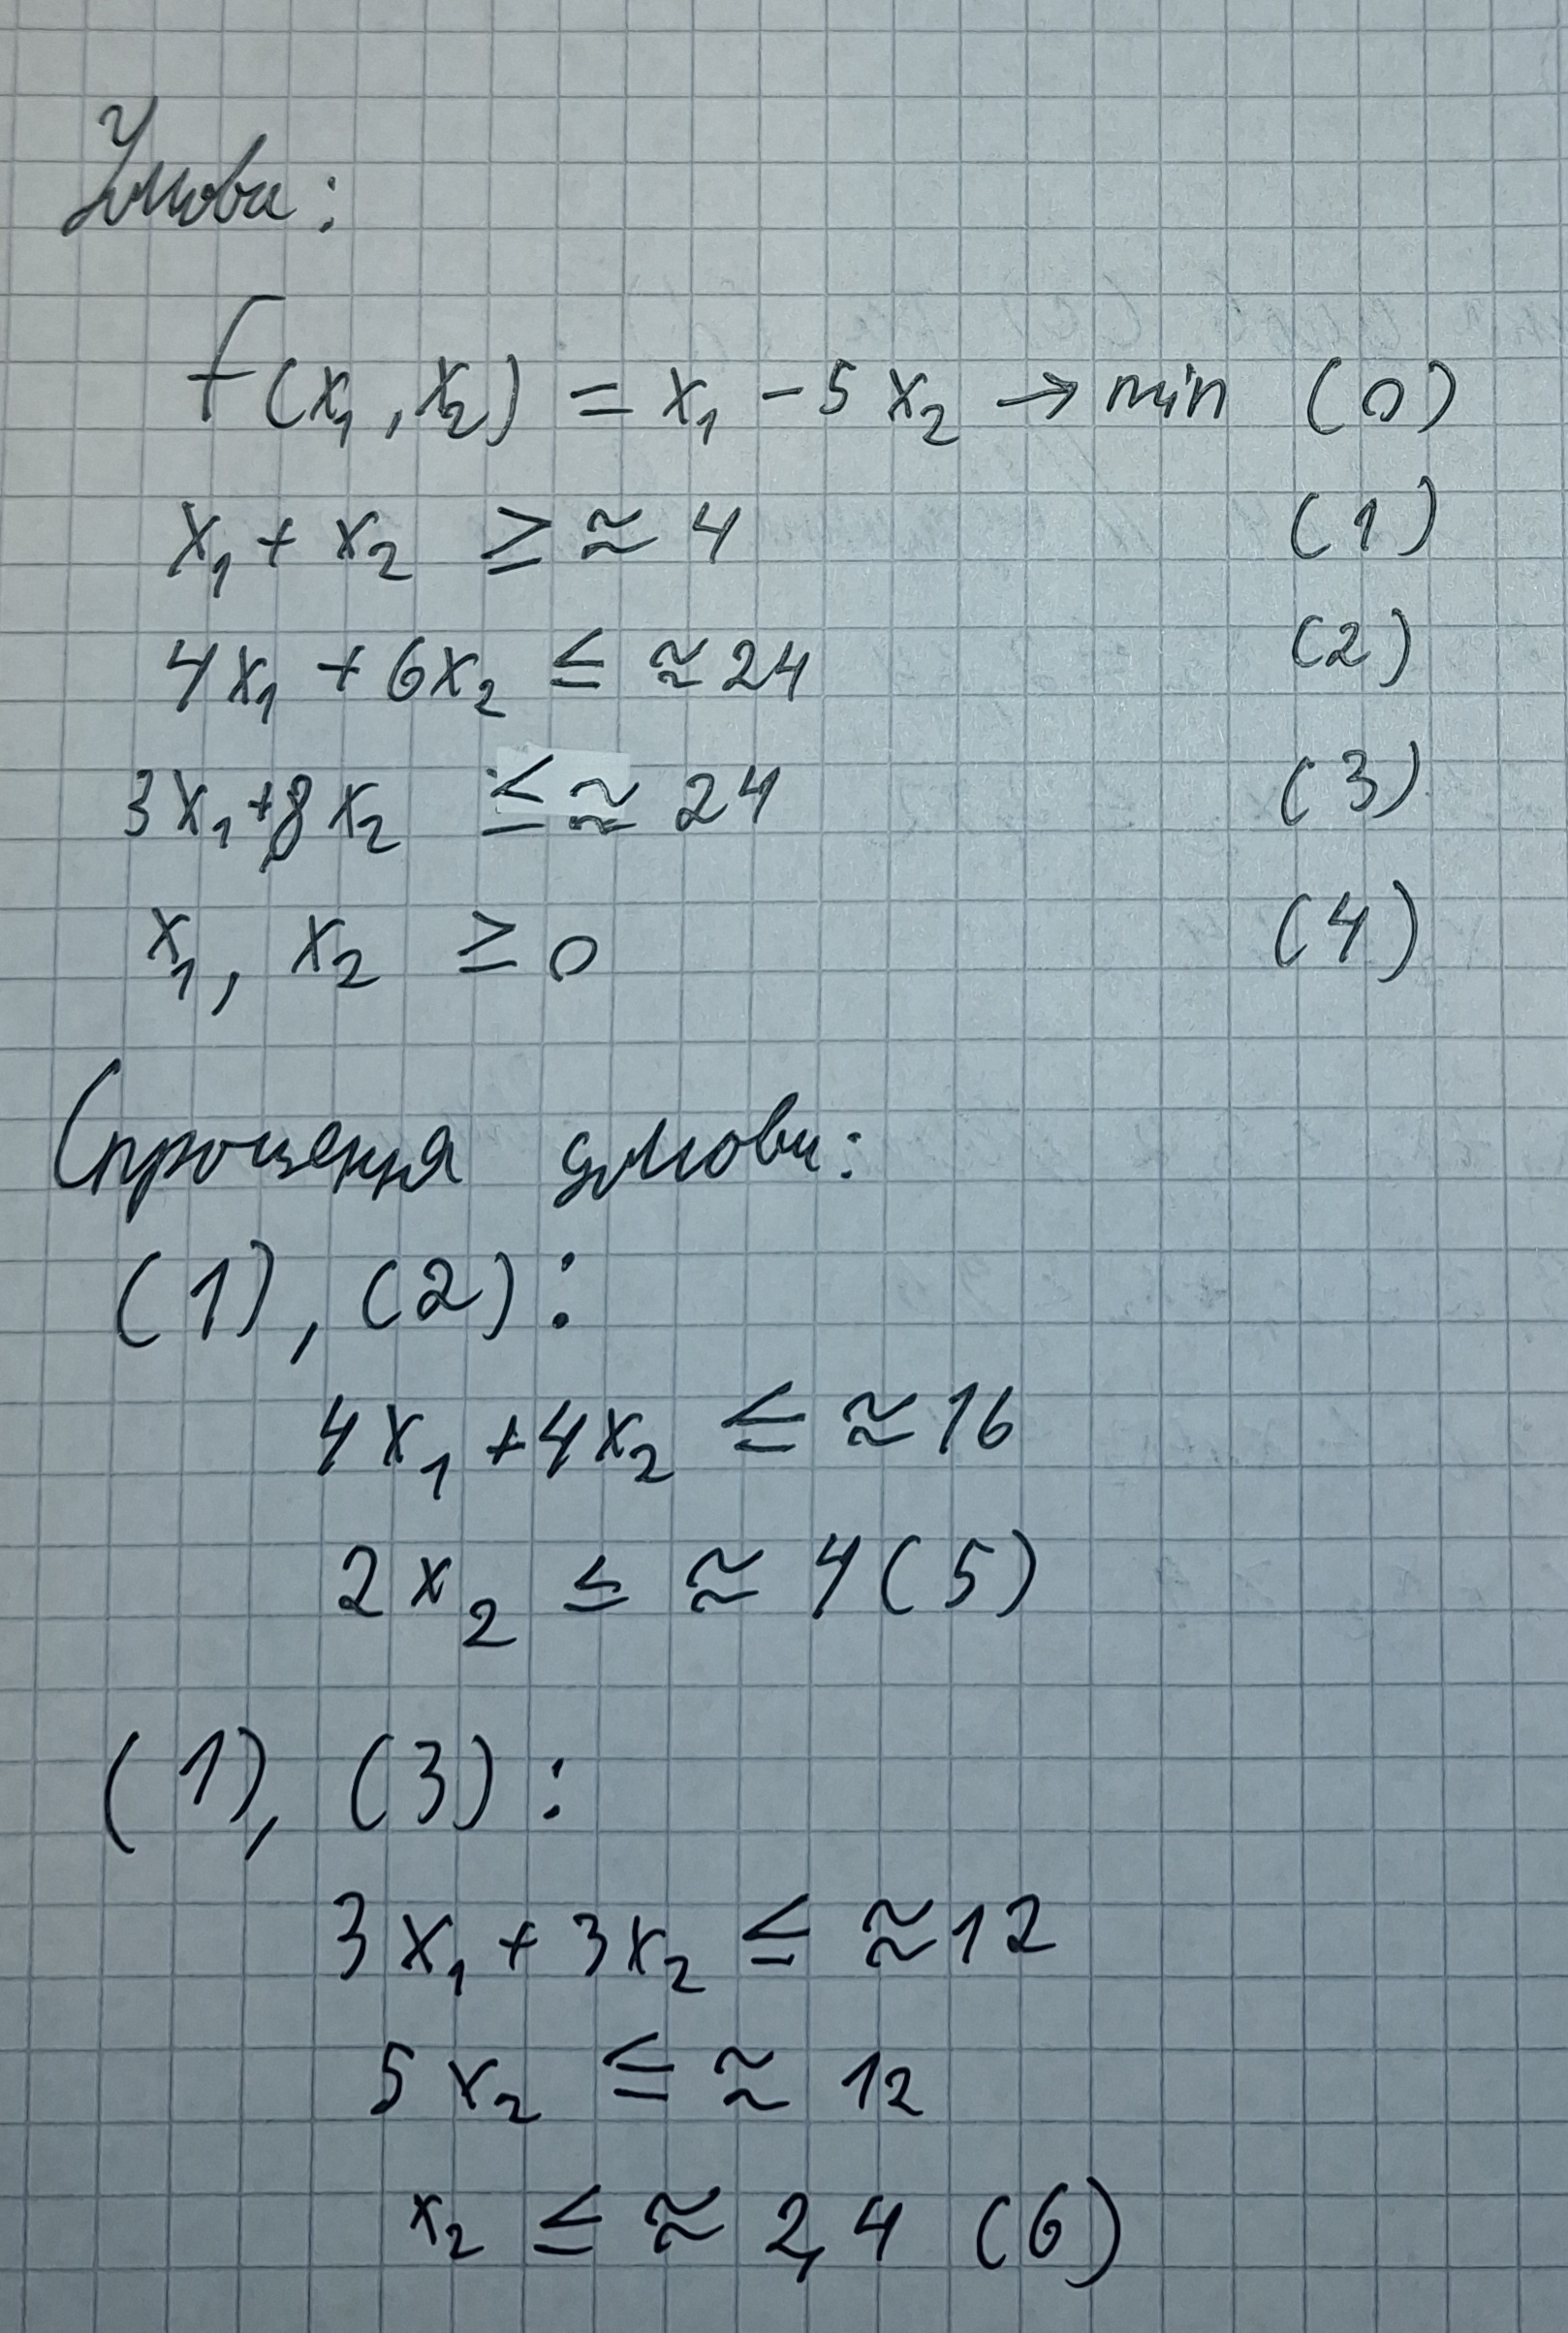 Умова:
f(x₁, x₂) = x₁ - 5x₂ → min (0)
x₁ + x₂ ≥ ≈ 4 (1)
4x₁ + 6x₂ ≤ ≈ 24 (2)
3x₁ + 8x₂ ≤ ≈ 24 (3)
x₁, x₂ ≥ 0 (4)
Спрощення умови:
(1), (2):
4x₁ + 4x₂ ≤ ≈ 16
2x₂ ≤ ≈ 4 (5)
(1), (3):
3x₁ + 3x₂ ≤ ≈ 12
5x₂ ≤ ≈ 12
x₂ ≤ ≈ 2,4 (6)